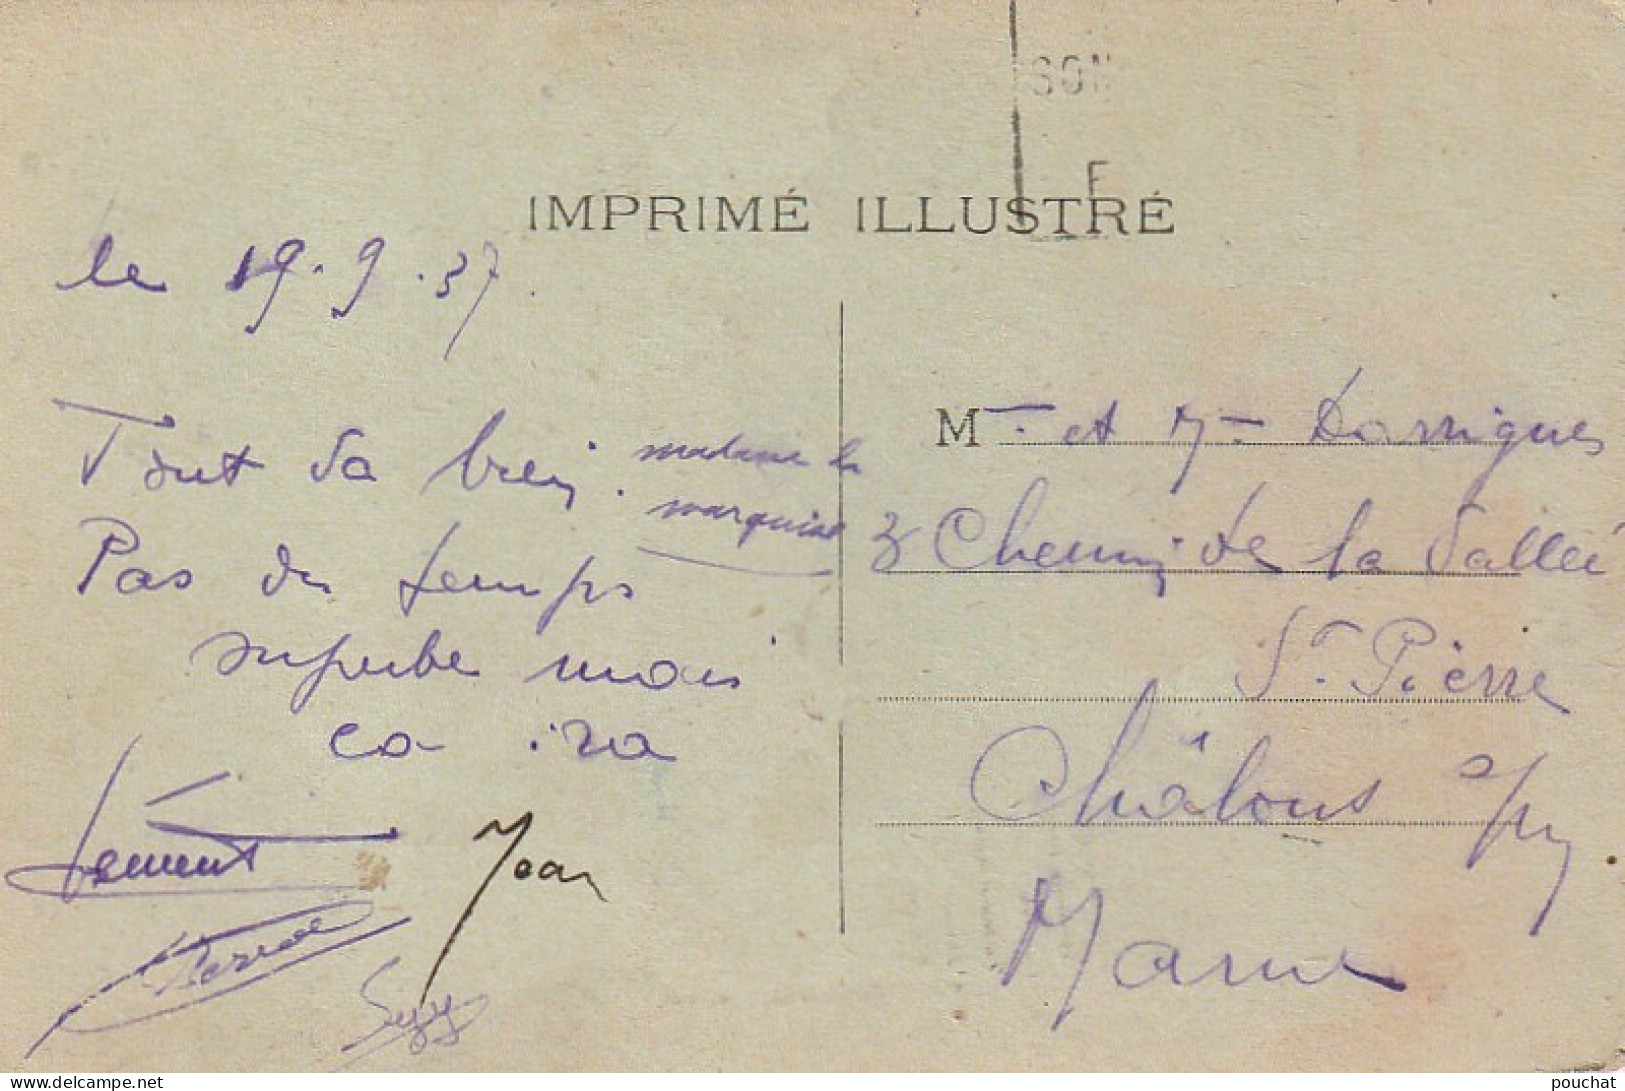 SON
F
IMPRIMÉ ILLUSTRÉ
le 19.9.37.
Tout va bien. madame la
marquise
Pas du temps
superbe mais
ca ira
Jean
Suzy
Mr. et Mme Darrigues
3 Chemin de la Vallée
St. Pierre
Châlons s/m
Marne
www.delcampe.net
pouchat